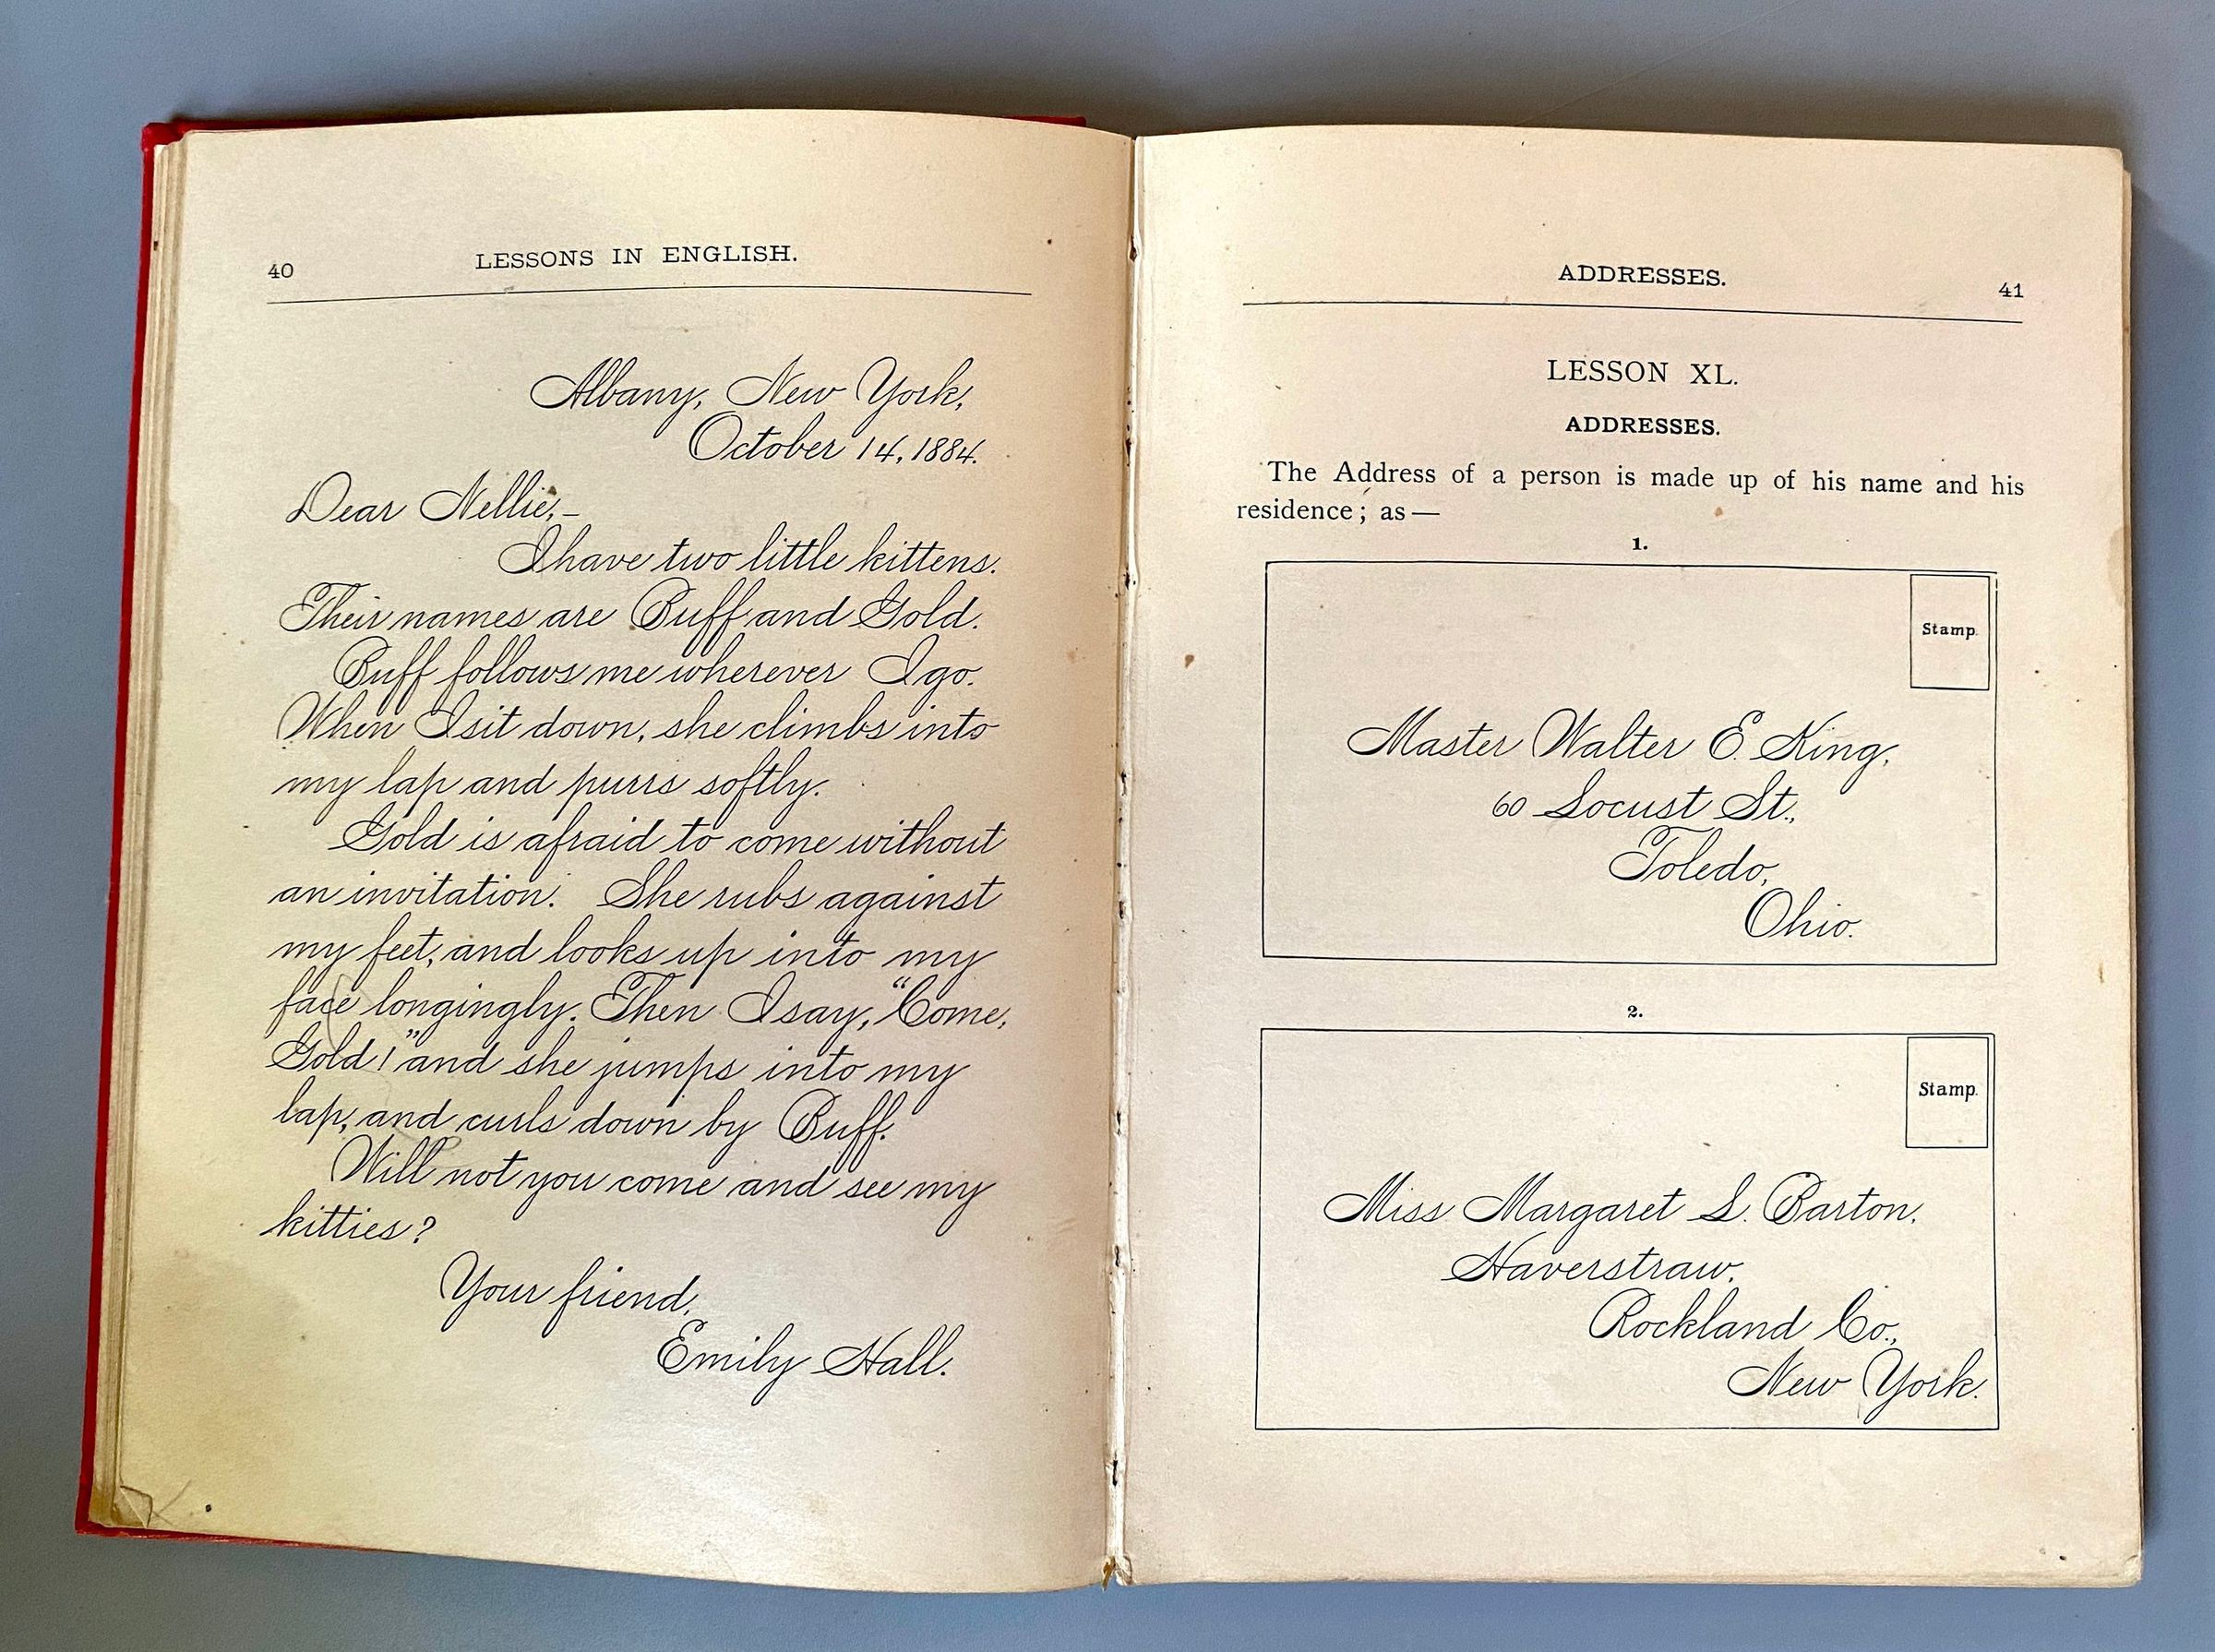 40
LESSONS IN ENGLISH.
Albany, New York,
October 14, 1884.
Dear Nellie,—
I have two little kittens.
Their names are Buff and Gold.
Buff follows me wherever I go.
When I sit down, she climbs into
my lap and purrs softly.
Gold is afraid to come without
an invitation. She rubs against
my feet, and looks up into my
face longingly. Then I say, “Come,
Gold!” and she jumps into my
lap, and curls down by Buff.
Will not you come and see my
kitties?
Your friend,
Emily Hall.
ADDRESSES.
41
LESSON XL.
ADDRESSES.
The Address of a person is made up of his name and his
residence; as—
1.
Stamp.
Master Walter E. King,
60 Locust St.,
Toledo,
Ohio.
2.
Stamp.
Miss Margaret L. Barton,
Haverstraw,
Rockland Co.,
New York.